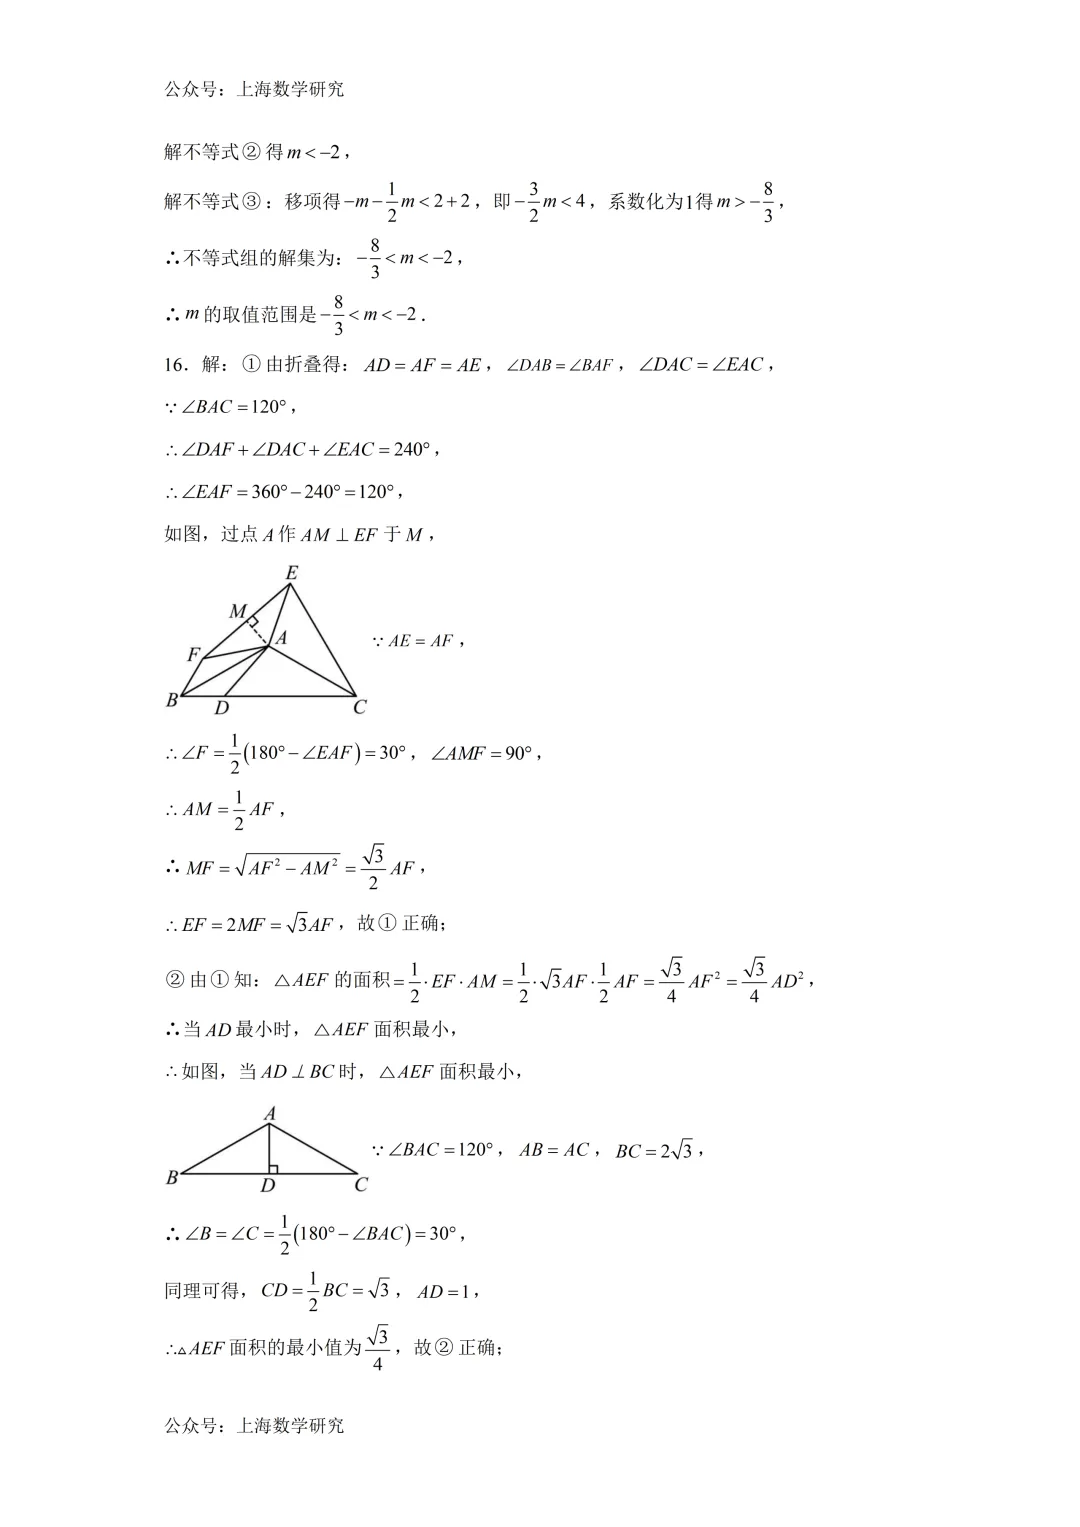 公众号：上海数学研究
解不等式②得m<−2，
解不等式③：移项得−m−1/2m<2+2，即−3/2m<4，系数化为1得m>−8/3，
∴不等式组的解集为：−8/3<m<−2，
∴m的取值范围是−8/3<m<−2．
16．解：①由折叠得：AD=AF=AE，∠DAB=∠BAF，∠DAC=∠EAC，
∵∠BAC=120°，
∴∠DAF+∠DAC+∠EAC=240°，
∴∠EAF=360°−240°=120°，
如图，过点A作AM⊥EF于M，
E
M
A
F
B
D
C
∵AE=AF，
∴∠F=1/2(180°−∠EAF)=30°，∠AMF=90°，
∴AM=1/2AF，
∴MF=√(AF²−AM²)=√3/2AF，
∴EF=2MF=√3AF，故①正确；
②由①知：△AEF的面积=1/2·EF·AM=1/2·√3AF·1/2AF=√3/4AF²=√3/4AD²，
∴当AD最小时，△AEF面积最小，
∴如图，当AD⊥BC时，△AEF面积最小，
A
B
D
C
∵∠BAC=120°，AB=AC，BC=2√3，
∴∠B=∠C=1/2(180°−∠BAC)=30°，
同理可得，CD=1/2BC=√3，AD=1，
∴△AEF面积的最小值为√3/4，故②正确；
公众号：上海数学研究